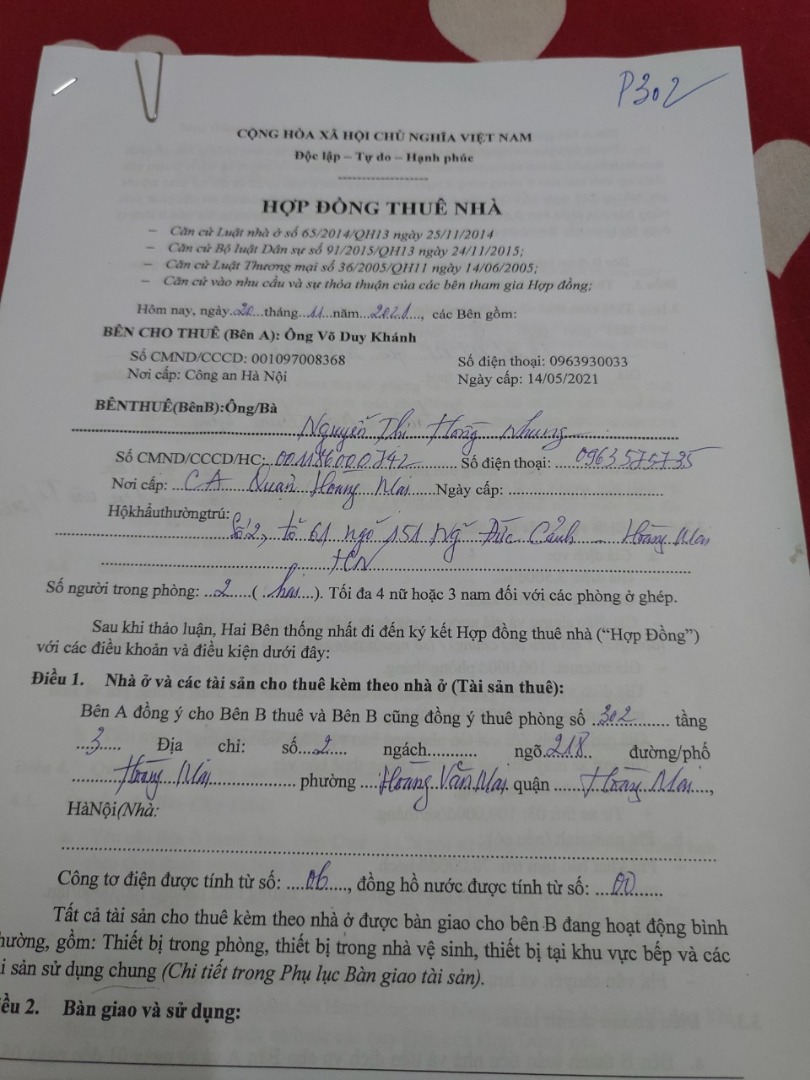 P302
CỘNG HÒA XÃ HỘI CHỦ NGHĨA VIỆT NAM
Độc lập – Tự do – Hạnh phúc
HỢP ĐỒNG THUÊ NHÀ
– Căn cứ Luật nhà ở số 65/2014/QH13 ngày 25/11/2014
– Căn cứ Bộ luật Dân sự số 91/2015/QH13 ngày 24/11/2015;
– Căn cứ Luật Thương mại số 36/2005/QH11 ngày 14/06/2005;
– Căn cứ vào nhu cầu và sự thỏa thuận của các bên tham gia Hợp đồng;
Hôm nay, ngày 20 tháng 11 năm 2021, các Bên gồm:
BÊN CHO THUÊ (Bên A): Ông Võ Duy Khánh
Số CMND/CCCD: 001097008368 Số điện thoại: 0963930033
Nơi cấp: Công an Hà Nội Ngày cấp: 14/05/2021
BÊNTHUÊ(BênB):Ông/Bà
Nguyễn Thị Hồng Nhung
Số CMND/CCCD/HC: 001186000742 Số điện thoại: 0963575735
Nơi cấp: CA Quận Hoàng Mai Ngày cấp:
Hộkhẩuthườngtrú: Số 2, tổ 61 ngõ 151 Ng Đức Cảnh - Hoàng Mai
HN
Số người trong phòng: 2 ( hai ). Tối đa 4 nữ hoặc 3 nam đối với các phòng ở ghép.
Sau khi thảo luận, Hai Bên thống nhất đi đến ký kết Hợp đồng thuê nhà (“Hợp Đồng”)
với các điều khoản và điều kiện dưới đây:
Điều 1. Nhà ở và các tài sản cho thuê kèm theo nhà ở (Tài sản thuê):
Bên A đồng ý cho Bên B thuê và Bên B cũng đồng ý thuê phòng số 302 tầng
3 Địa chỉ: số 2 ngách ngõ 218 đường/phố
Hoàng Mai phường Hoàng Văn Mai quận Hoàng Mai,
HàNội(Nhà:
Công tơ điện được tính từ số: 06, đồng hồ nước được tính từ số: 00
Tất cả tài sản cho thuê kèm theo nhà ở được bàn giao cho bên B đang hoạt động bình
hường, gồm: Thiết bị trong phòng, thiết bị trong nhà vệ sinh, thiết bị tại khu vực bếp và các
i sản sử dụng chung (Chi tiết trong Phụ lục Bàn giao tài sản).
iều 2. Bàn giao và sử dụng: